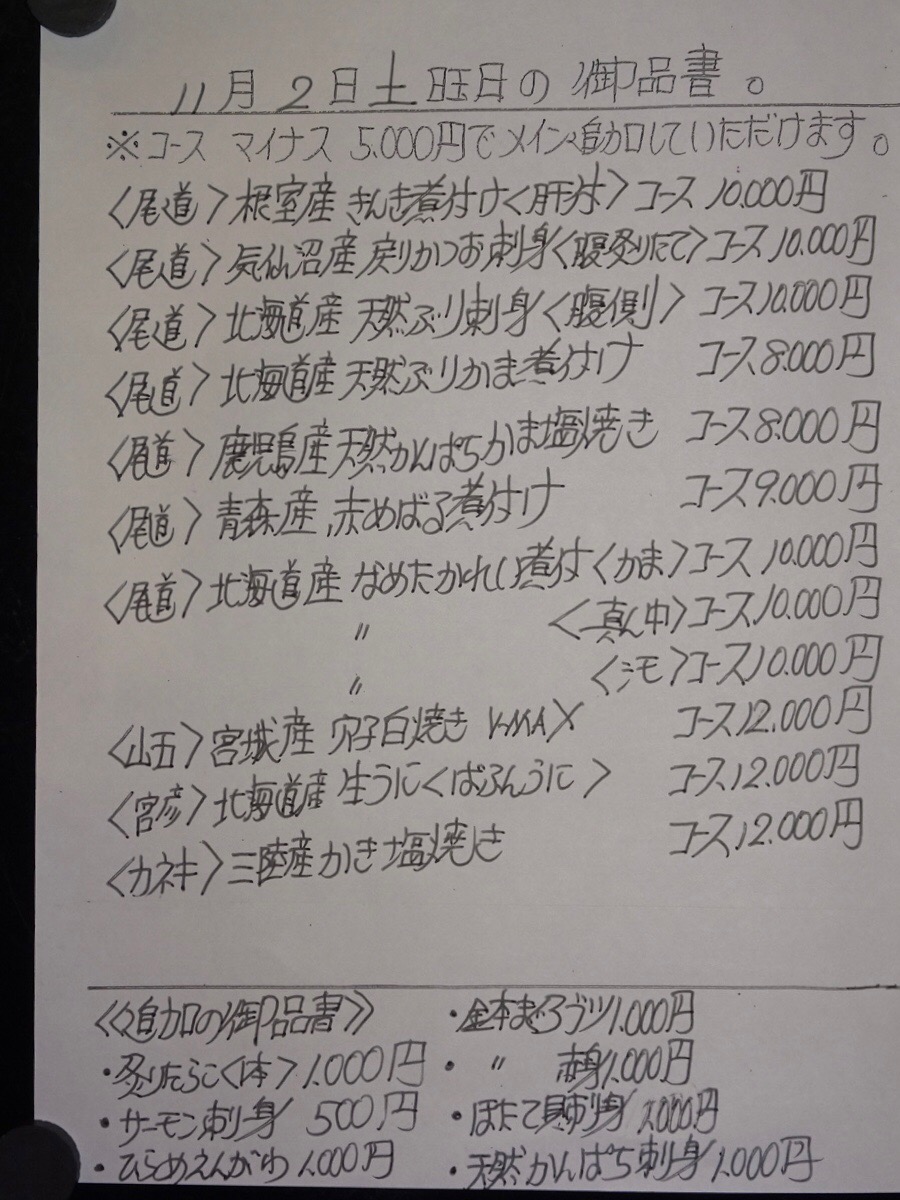 11月2日土旺日の御品書。
※コース マイナス 5.000円でメイン追加していただけます。
〈尾道〉根室産 きんき煮付け〈肝付〉コース 10.000円
〈尾道〉気仙沼産 戻りかつお刺身〈腹炙りたて〉コース 10.000円
〈尾道〉北海道産 天然ぶり刺身〈腹側〉 コース 10.000円
〈尾道〉北海道産 天然ぶりかま煮付け コース 8.000円
〈尾道〉鹿児島産天然かんぱちかま塩焼き コース 8.000円
〈尾道〉青森産 赤めばる煮付け コース 9.000円
〈尾道〉北海道産 なめたかれい煮付〈かま〉コース 10.000円
〃 〈真ん中〉コース 10.000円
〃 〈シモ〉コース 10.000円
〈山五〉宮城産 穴子白焼き MAX コース 12.000円
〈宮彦〉北海道産 生うに〈ばふんうに〉 コース 12.000円
〈カネキ〉三陸産かき塩焼き コース 12.000円
《追加の御品書》
・炙りたらこ〈1本〉1.000円
・サーモン刺身 500円
・ひらめえんがわ 1.000円
・生本まぐろブツ 1.000円
・〃 赤身 1.000円
・ほたて貝刺身 1.000円
・天然かんぱち刺身 1.000円